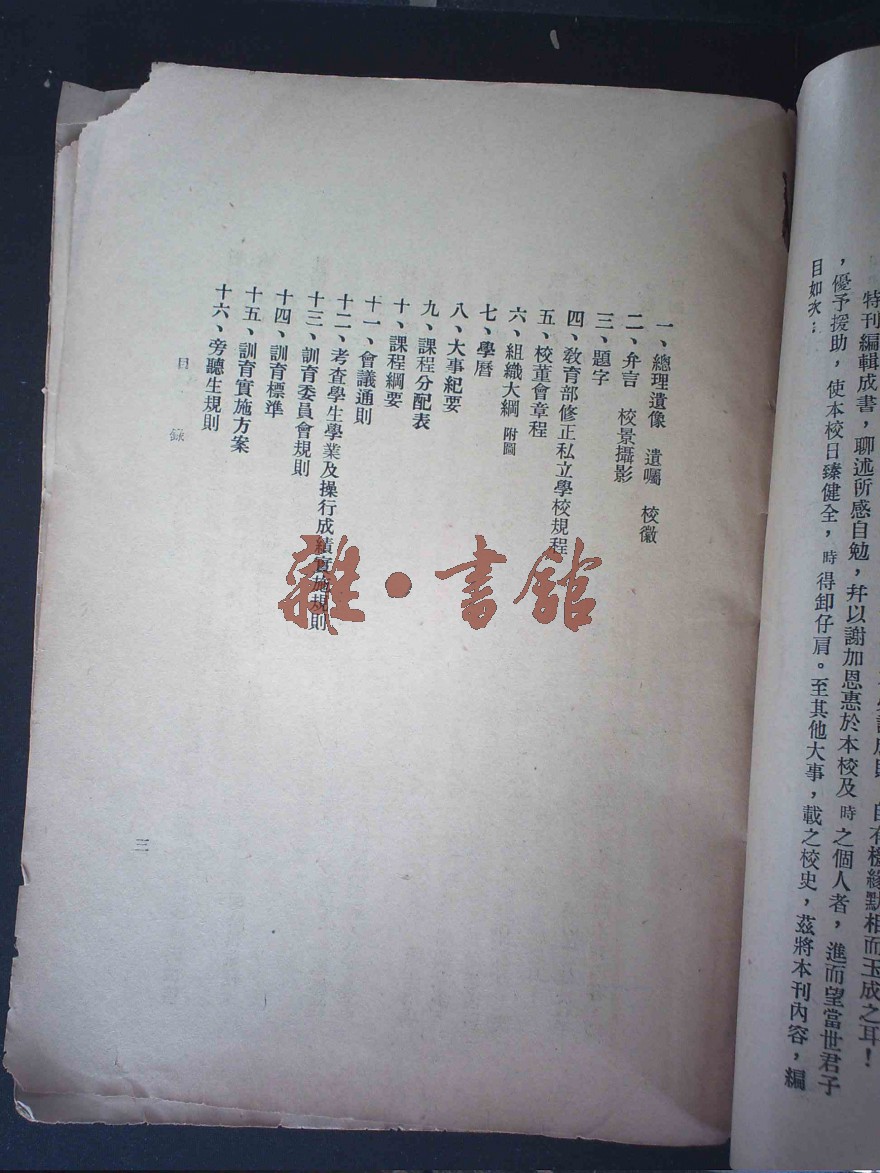 特刊編輯成書，聊述所感自勉，幷以謝加恩惠於本校及時之個人者，進而望當世君子
，優予援助，使本校日臻健全，時得卸仔肩。至其他大事，載之校史，茲將本刊內容，編
目如次：
一、總理遺像　遺囑　校徽
二、弁言　校景攝影
三、題字
四、敎育部修正私立學校規程
五、校董會章程
六、組織大綱　附圖
七、學曆
八、大事紀要
九、課程分配表
十、課程綱要
十一、會議通則
十二、考查學生學業及操行成績實施規則
十三、訓育委員會規則
十四、訓育標準
十五、訓育實施方案
十六、旁聽生規則
目錄
三
雜·書館